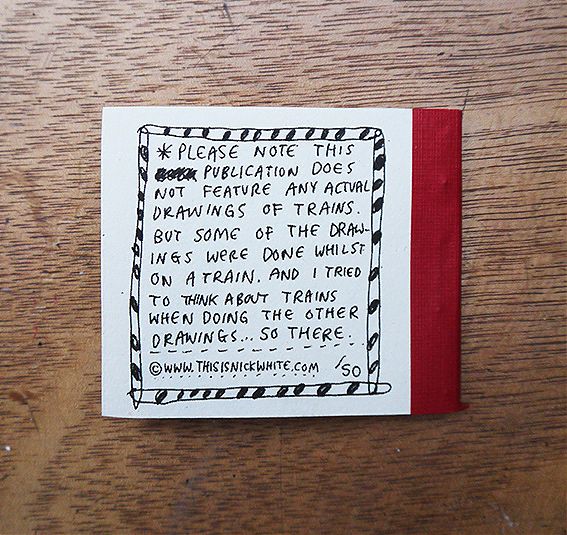 * PLEASE NOTE THIS
PUBLICATION DOES
NOT FEATURE ANY ACTUAL
DRAWINGS OF TRAINS.
BUT SOME OF THE DRAW-
INGS WERE DONE WHILST
ON A TRAIN. AND I TRIED
TO THINK ABOUT TRAINS
WHEN DOING THE OTHER
DRAWINGS... SO THERE.
© WWW.THISISNICKWHITE.COM /50